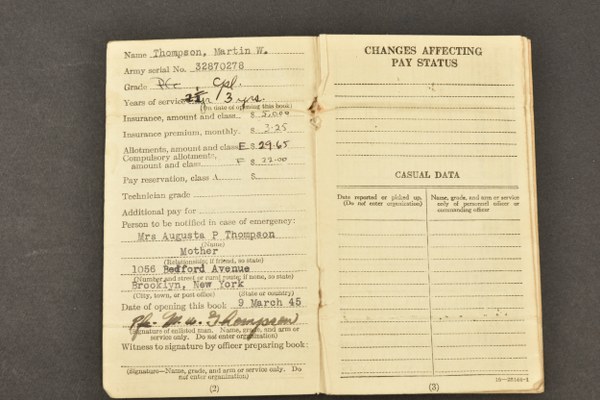 Name Thompson, Martin W.
Army serial No. 32870278
Grade Pfc Cpl.
Years of service 3 yrs.
(On date of opening this book)
Insurance, amount and class $ 5,000
Insurance premium, monthly. $ 3.25
Allotments, amount and class E $ 29.65
Compulsory allotments,
amount and class F $ 22.00
Pay reservation, class A. $
Technician grade
Additional pay for
Person to be notified in case of emergency:
Mrs Augusta P Thompson
(Name)
Mother
(Relationship; if friend, so state)
1056 Bedford Avenue
(Number and street or rural route; if none, so state)
Brooklyn, New York
(City, town, or post office) (State or country)
Date of opening this book 9 March 45
Pfc. M. W. Thompson
(Signature of enlisted man. Name, grade, and arm or
service only. Do not enter organization)
Witness to signature by officer preparing book:
(Signature—Name, grade, and arm or service only. Do
not enter organization)
(2)
CHANGES AFFECTING
PAY STATUS
CASUAL DATA
Date reported or picked up.
(Do not enter organization)
Name, grade, and arm or service
only of personnel officer or
commanding officer
(3)